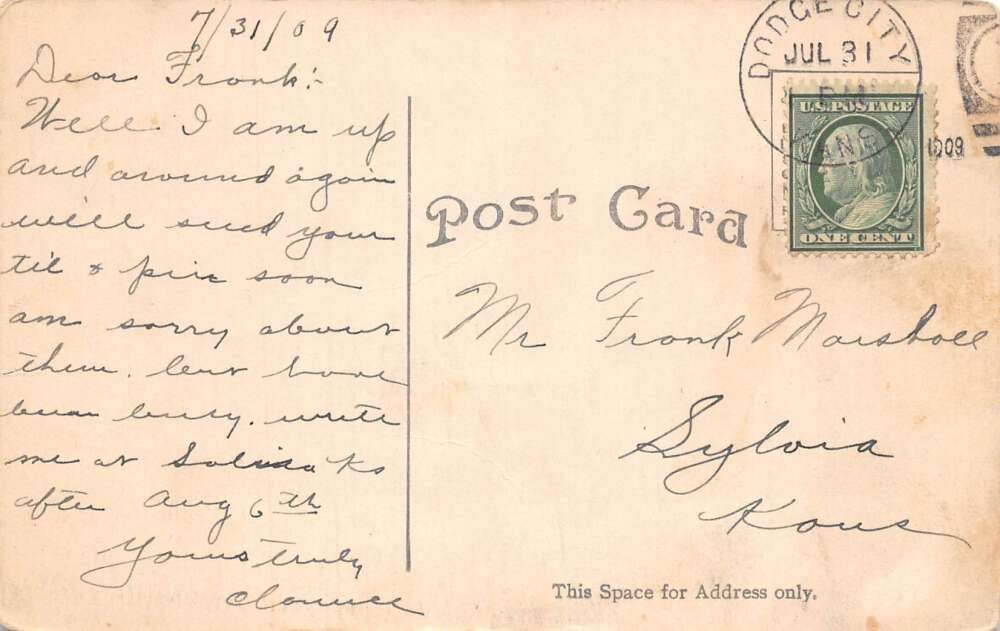 7/31/09
Dear Frank:-
Well I am up
and around again
will send your
tie & pin soon
am sorry about
them. but have
been busy. write
me at Salina Ks
after Aug 6th
Yours truly
Clarence
Post Card
DODGE CITY
JUL 31
PM
KANS
1909
U.S. POSTAGE
ONE CENT
Mr Frank Marshall
Sylvia
Kans
This Space for Address only.